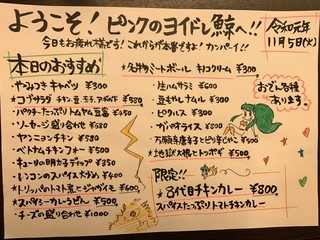 ようこそ！ピンクのヨイドレ鯨へ!!
今日もお疲れ様です！これからが本番ですよ！カンパーイ!!
令和元年
11月5日(火)
本日のおすすめ
・やみつきキャベツ ¥300
★コブサラダ チキン、豆、モチ、アボカド ¥580
・パクチーたっぷりトムヤム豆腐 ¥450
・ソーセージ盛り合わせ ¥580
・ヤンニョンチキン ¥580
・ベトナムチキンフォー ¥500
・キューリの明太ディップ ¥350
・レンコンのスパイス炒め ¥400
★トリッパのトマト煮とジャガイモ ¥600
★スパイシーカレーうどん ¥500
・チーズの盛り合わせ ¥1000
★名物ミートボール キノコクリーム ¥300
・生ハムサラミ ¥600
・豆モヤシナムル ¥300
・ピクルス ¥300
・ガツのオライス ¥800
・万願寺唐辛子とピリ辛くやっこ ¥500
★地獄の大根とトッポギ ¥500
おでん各種
あります。
限定!!
★3代目チキンカレー ¥800
スパイスたっぷりトマトチキンカレー